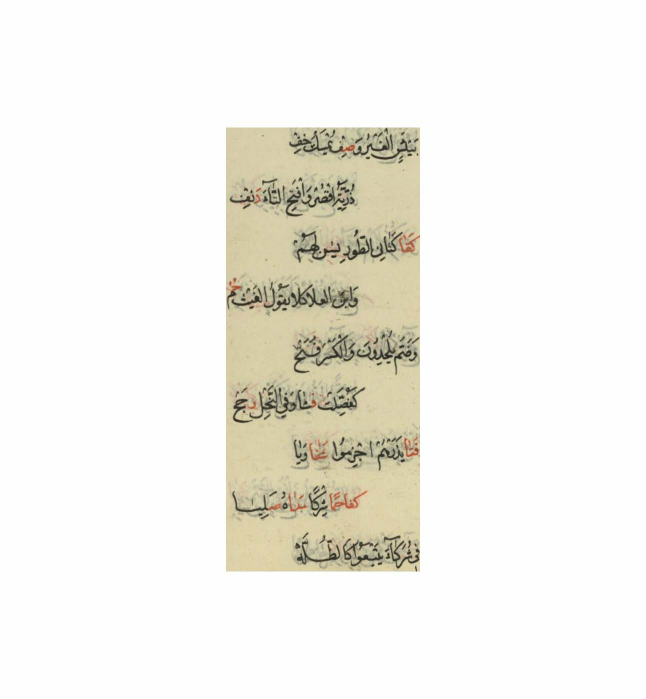 بَيْئَسٍ الْغَيْرُ وَصِفْ يُمْسِكُ خِفْ
ذُرِّيَّةَ اقْصُرْ وَافْتَحِ التَّاءَ دَنِفْ
كَفَا كَثَانِ الطُّورِ يس لَهُمْ
وَابْنُ الْعَلَا كِلَا يَقُولُ الْغَيْبُ حُمْ
وَضَمَّ يُلْحِدُونَ وَالْكَسْرُ فُتِحْ
كَفُصِّلَتْ فَشَا وَفِي النَّحْلِ رَجَحْ
فَتًا يَذَرْهُمُ اجْزِمُوا شَفَا وَيَا
كَفَا حِمًا شِرْكًا مَدَاهُ صَلِيَا
فِي شُرَكَاءَ يَتْبَعُوا كَالظُّلَّهْ